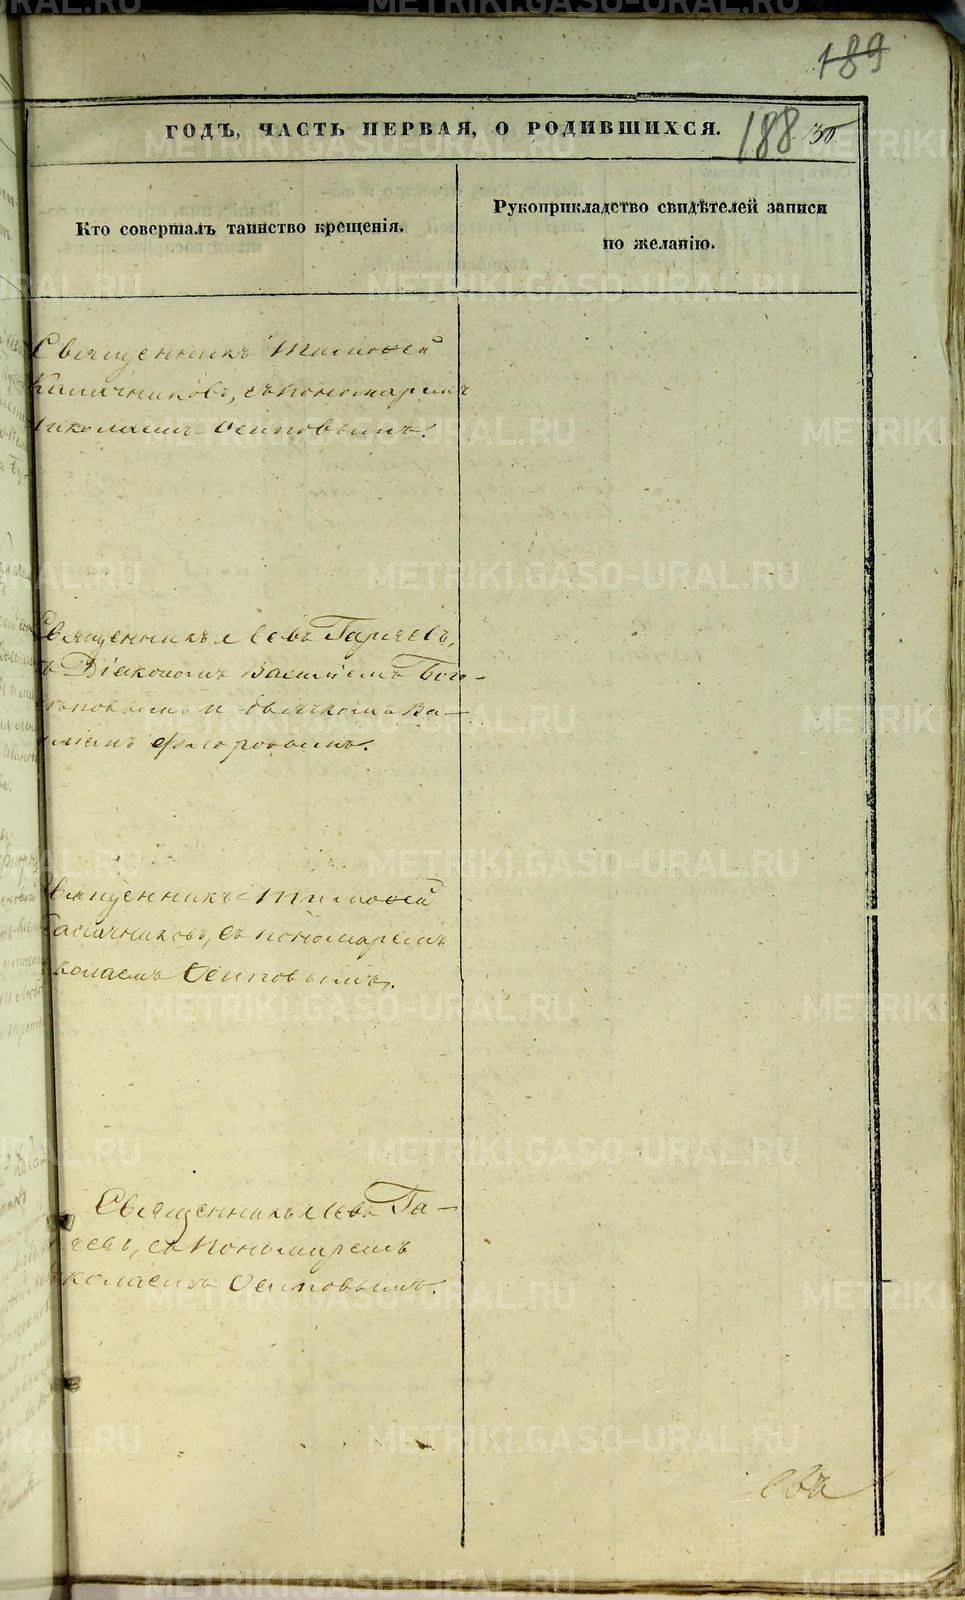 189
ГОДЪ, ЧАСТЬ ПЕРВАЯ, О РОДИВШИХСЯ.
188
Кто совершалъ таинство крещенія.
Рукоприкладство свидѣтелей записи
по желанію.
Священникъ Тимоѳей
Калачниковъ, съ пономаремъ
Николаемъ Осиповымъ.
Священникъ Левъ Гаряевъ,
съ Діакономъ Василіемъ Бого-
и дьячкомъ Ва-
Флоровымъ.
Священникъ Тимоѳей
Калачниковъ, съ пономаремъ
Николаемъ Осиповымъ.
Священникъ Левъ Га-
ряевъ, съ пономаремъ
Николаемъ Осиповымъ.
METRIKI.GASO-URAL.RU